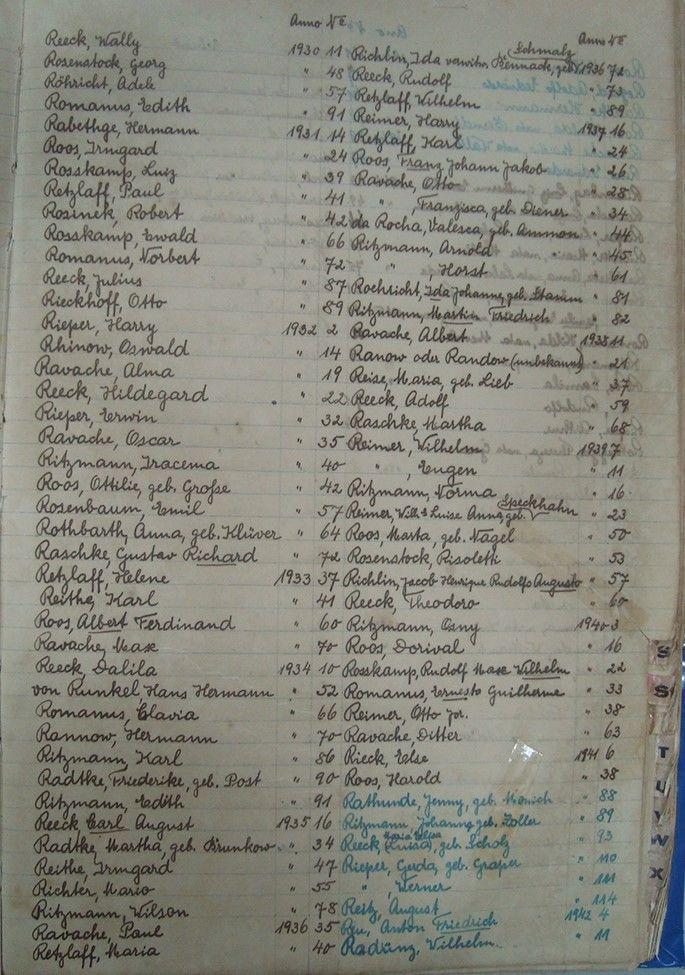 Anno No
Reeck, Wally 1930 11
Rosenstock, Georg " 48
Röhricht, Adele " 57
Romanus, Edith " 91
Rabethge, Hermann 1931 14
Roos, Irmgard " 24
Rosskamp, Luiz " 39
Retzlaff, Paul " 41
Rosinek, Robert " 42
Rosskamp, Ewald " 66
Romanus, Norbert " 72
Reeck, Julius " 87
Rieckhoff, Otto " 89
Rieper, Harry 1932 2
Rhinow, Oswald " 14
Ravache, Alma " 19
Reeck, Hildegard " 22
Rieper, Erwin " 32
Ravache, Oscar " 35
Ritzmann, Iracema " 40
Roos, Ottilie, geb. Große " 42
Rosenbaum, Emil " 57
Rothbarth, Anna, geb. Klüver " 64
Raschke, Gustav Richard " 72
Retzlaff, Helene 1933 37
Reithe, Karl " 41
Roos, Albert Ferdinand " 60
Ravache, Max " 70
Reeck, Dalila 1934 10
von Runkel Hans Hermann " 52
Romanus, Clavia " 66
Rannow, Hermann " 70
Ritzmann, Karl " 86
Radtke, Friederike, geb. Post " 90
Ritzmann, Edith " 91
Reeck, Carl August 1935 16
Radtke, Martha, geb. Brunkow " 34
Reithe, Irmgard " 47
Richter, Mario " 55
Ritzmann, Wilson " 78
Ravache, Paul 1936 35
Retzlaff, Maria " 40
Anno No
Schmalz
Richlin, Ida verwitw. Bennack, geb. 1936 72
Reeck, Rudolf " 73
Retzlaff, Wilhelm " 89
Reimer, Harry 1937 16
Retzlaff, Karl " 24
Roos, Franz Johann Jakob " 26
Ravache, Otto " 28
" , Franzisca, geb. Diener " 34
da Rocha, Valesca, geb. Ammon " 44
Ritzmann, Arnold " 45
" Horst " 61
Rochricht, Ida Johanne, geb. Stamm " 81
Ritzmann, Martin Friedrich " 82
Ravache, Albert 1938 11
Ranow oder Randow (unbekannt) " 21
Reise, Maria, geb. Lieb " 37
Reeck, Adolf " 59
Raschke, Martha " 68
Reimer, Wilhelm 1939 7
" , Eugen " 11
Ritzmann, Norma " 16
Speckhahn
Reimer, Luise Anna, geb. " 23
Roos, Marta, geb. Nagel " 50
Rosenstock, Risoleti " 53
Richlin, Jacob Henrique Rudolfo Augusto " 57
Reeck, Theodoro " 60
Ritzmann, Osny 1940 3
Roos, Dorival " 16
Rosskamp, Rudolf Max Wilhelm " 22
Romanus, Ernesto Guilherme " 33
Reimer, Otto jr. " 38
Ravache, Ditter " 63
Rieck, Else 1941 6
Roos, Harold " 38
Rathunde, Jenny, geb. Monich " 88
Ritzmann Johanna geb. Zoller " 89
Reeck (Luisa), geb. Scholz " 93
Rieper, Gerda, geb. Graper " 110
" Werner " 111
Reitz, August " 114
Anton Friedrich 1942 4
Radünz, Wilhelm " 11
S
S
T
U
V
W
X